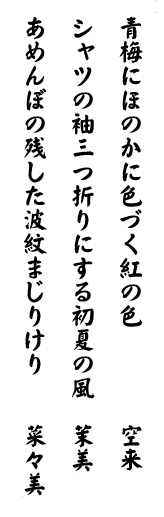 青梅にほのかに色づく紅の色　空来
シャツの袖三つ折りにする初夏の風　茉美
あめんぼの残した波紋まじりけり　菜々美